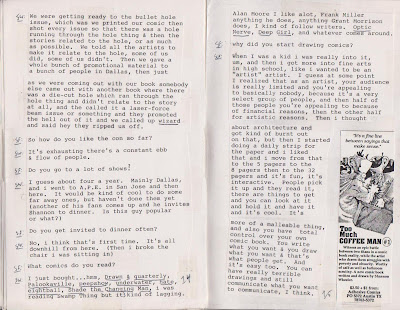 We were getting ready to the bullet hole
issue, which was we printed our comic then
shot every issue so that there was a hole
running through the hole thing & then the
stories related to the hole, or as much
as possible. We told all the artists to
make it relate to the hole, some of us
did, some of us didn't. Then we gave a
whole bunch of promotional material to
a bunch of people in Dallas, then just
as we were coming out with our book somebody
else came out with another book where there
was a die-cut hole which ran through the
hole thing and didn't relate to the story
at all, and the called it a laser-force
beam issue or something and they promoted
the hell out of it and we called up wizard
and said hey they ripped us off.
So how do you like the con so far?
It's exhausting there's a constant ebb
& flow of people.
Do you go to a lot of shows?
I guess about four a year. Mainly Dallas,
and I went to A.P.E. in San Jose and then
here. It would be kind of cool to do some
far away ones, but haven't done them yet
(another of his fans comes up and he invites
Shannon to dinner. Is this guy popular
or what?)
Do you get invited to dinner often?
No, I think that's first time. It's all
downhill from here. (Then I broke the
chair i was sitting in)
What comics do you read?
I just bought...hmm, Drawn & quarterly,
palookaville, peepshow, underwater, hate,
eightball, Shade the Changing Man, I was
reading Swamp Thing but it kind of lagging.
Alan Moore I like alot, Frank Miller
anything he does, anything Grant Morrison
does, I kind of follow writers. Optic
Nerve, Deep Girl, and whatever comes around.
why did you start drawing comics?
When I was a kid i was really into it,
um, and then I got more into fine arts
in high school, like i wanted to be an
"artist" artist. I guess at some point
I realized that as an artist, your audience
is really limited and you're appealing
to basically nobody, because it's a very
select group of people, and then half of
those people you're appealing to because
of financial reasons, then the other half
for artistic reasons. Then i thought
about architecture and
got kind of burnt out
on that, but then I started
doing a daily strip for
the paper and i liked
that and i move from that
to the 5 pagers to the
8 pagers then to the 32
pagers and it's fun, it's
interactive. People pick
it up and they read it,
there are things to get
and you can look at it
and hold it and have it
and it's cool. It's
more of a malleable thing,
and also you have total
control over your own
comic book. You write
what you want & you draw
what you want & that's
what people get. And
it's easy too. You can
have really terrible
drawings and still
communicate what you want
to communicate, I think.
"It's a fine line
between sayings that
make sense."
Too
Much
COFFEE MAN #1